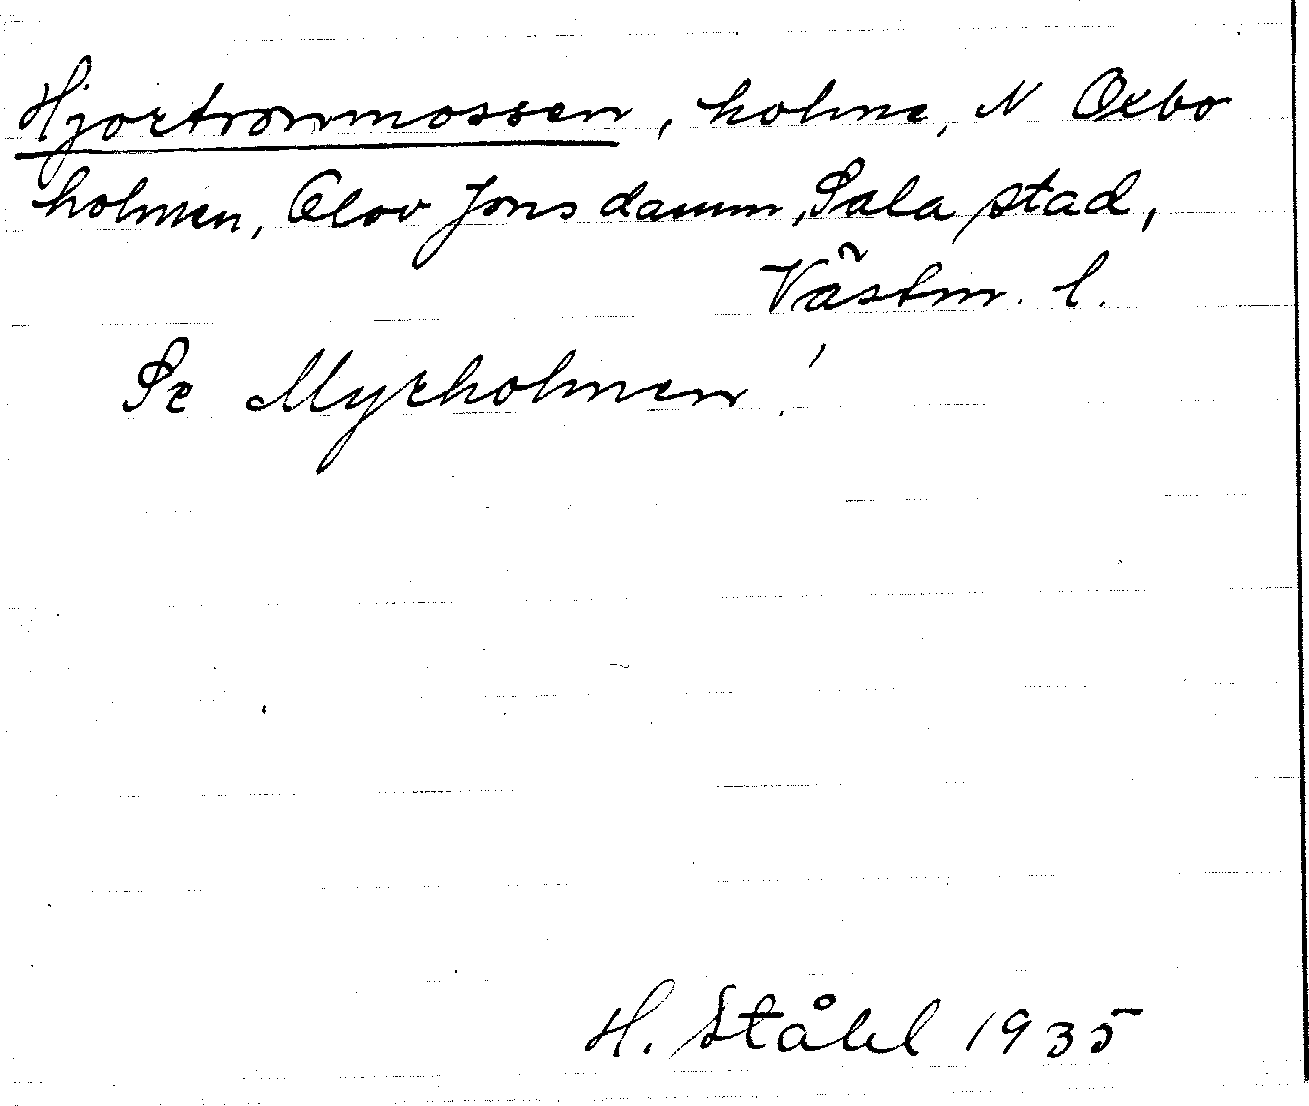 Hjortronmossen, holme, N Oxbo
holmen, Olov Jons damm, Sala stad,
Västm. l.
Se Myrholmen!
H. Ståhl 1935